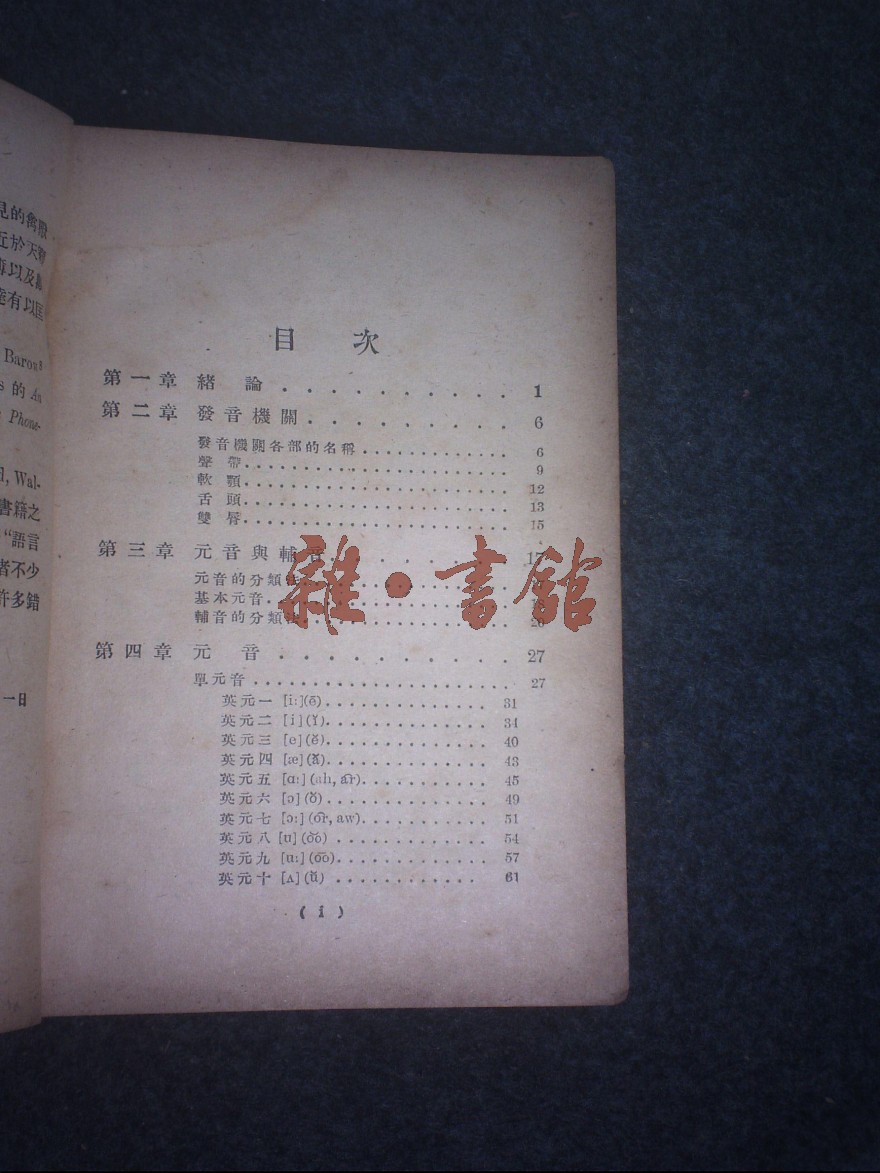 見的
近於天
以及
有以匡
Barons
s 的 An
Phone-
Wal-
書籍之
“語言
者不少
許多錯
一日
目 次
第一章 緒 論 . . . . . . . . . . 1
第二章 發音機關 . . . . . . . . . 6
發音機關各部的名稱 . . . . . . . . . . . . 6
聲 帶 . . . . . . . . . . . . . . . . . . . . 9
軟 顎 . . . . . . . . . . . . . . . . . . . . 12
舌 頭 . . . . . . . . . . . . . . . . . . . . 13
雙 唇 . . . . . . . . . . . . . . . . . . . . 15
第三章 元音與輔音 . . . . . . . . 17
元音的分類法
基本元音
輔音的分類法 26
第四章 元 音 . . . . . . . . . . 27
單元音 . . . . . . . . . . . . . . . . . . . . 27
英元一 [i:](ē) . . . . . . . . . . . . . 31
英元二 [i](ĭ) . . . . . . . . . . . . . 34
英元三 [e](ĕ) . . . . . . . . . . . . . 40
英元四 [æ](ă) . . . . . . . . . . . . . 43
英元五 [ɑ:](ah, är) . . . . . . . . . . 45
英元六 [ɔ](ŏ) . . . . . . . . . . . . . 49
英元七 [ɔ:](ôr, aw) . . . . . . . . . . 51
英元八 [ʊ](o͝o) . . . . . . . . . . . . 54
英元九 [u:](o͞o) . . . . . . . . . . . . 57
英元十 [ʌ](ŭ) . . . . . . . . . . . . 61
( i )
雜·書館